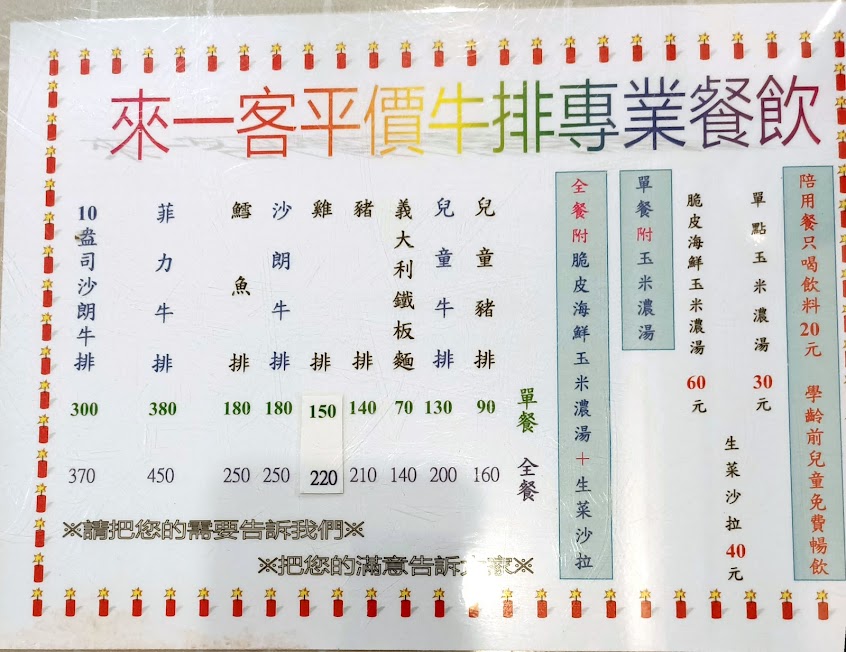 來一客平價牛排專業餐飲
陪用餐只喝飲料20元 學齡前兒童免費暢飲
單點玉米濃湯 30元
生菜沙拉 40元
脆皮海鮮玉米濃湯 60元
單餐附玉米濃湯
全餐附脆皮海鮮玉米濃湯+生菜沙拉
單餐 全餐
兒童豬排 90 160
兒童牛排 130 200
義大利鐵板麵 70 140
豬排 140 210
雞排 150 220
沙朗牛排 180 250
鱈魚排 180 250
菲力牛排 380 450
10盎司沙朗牛排 300 370
※請把您的需要告訴我們※
※把您的滿意告訴大家※